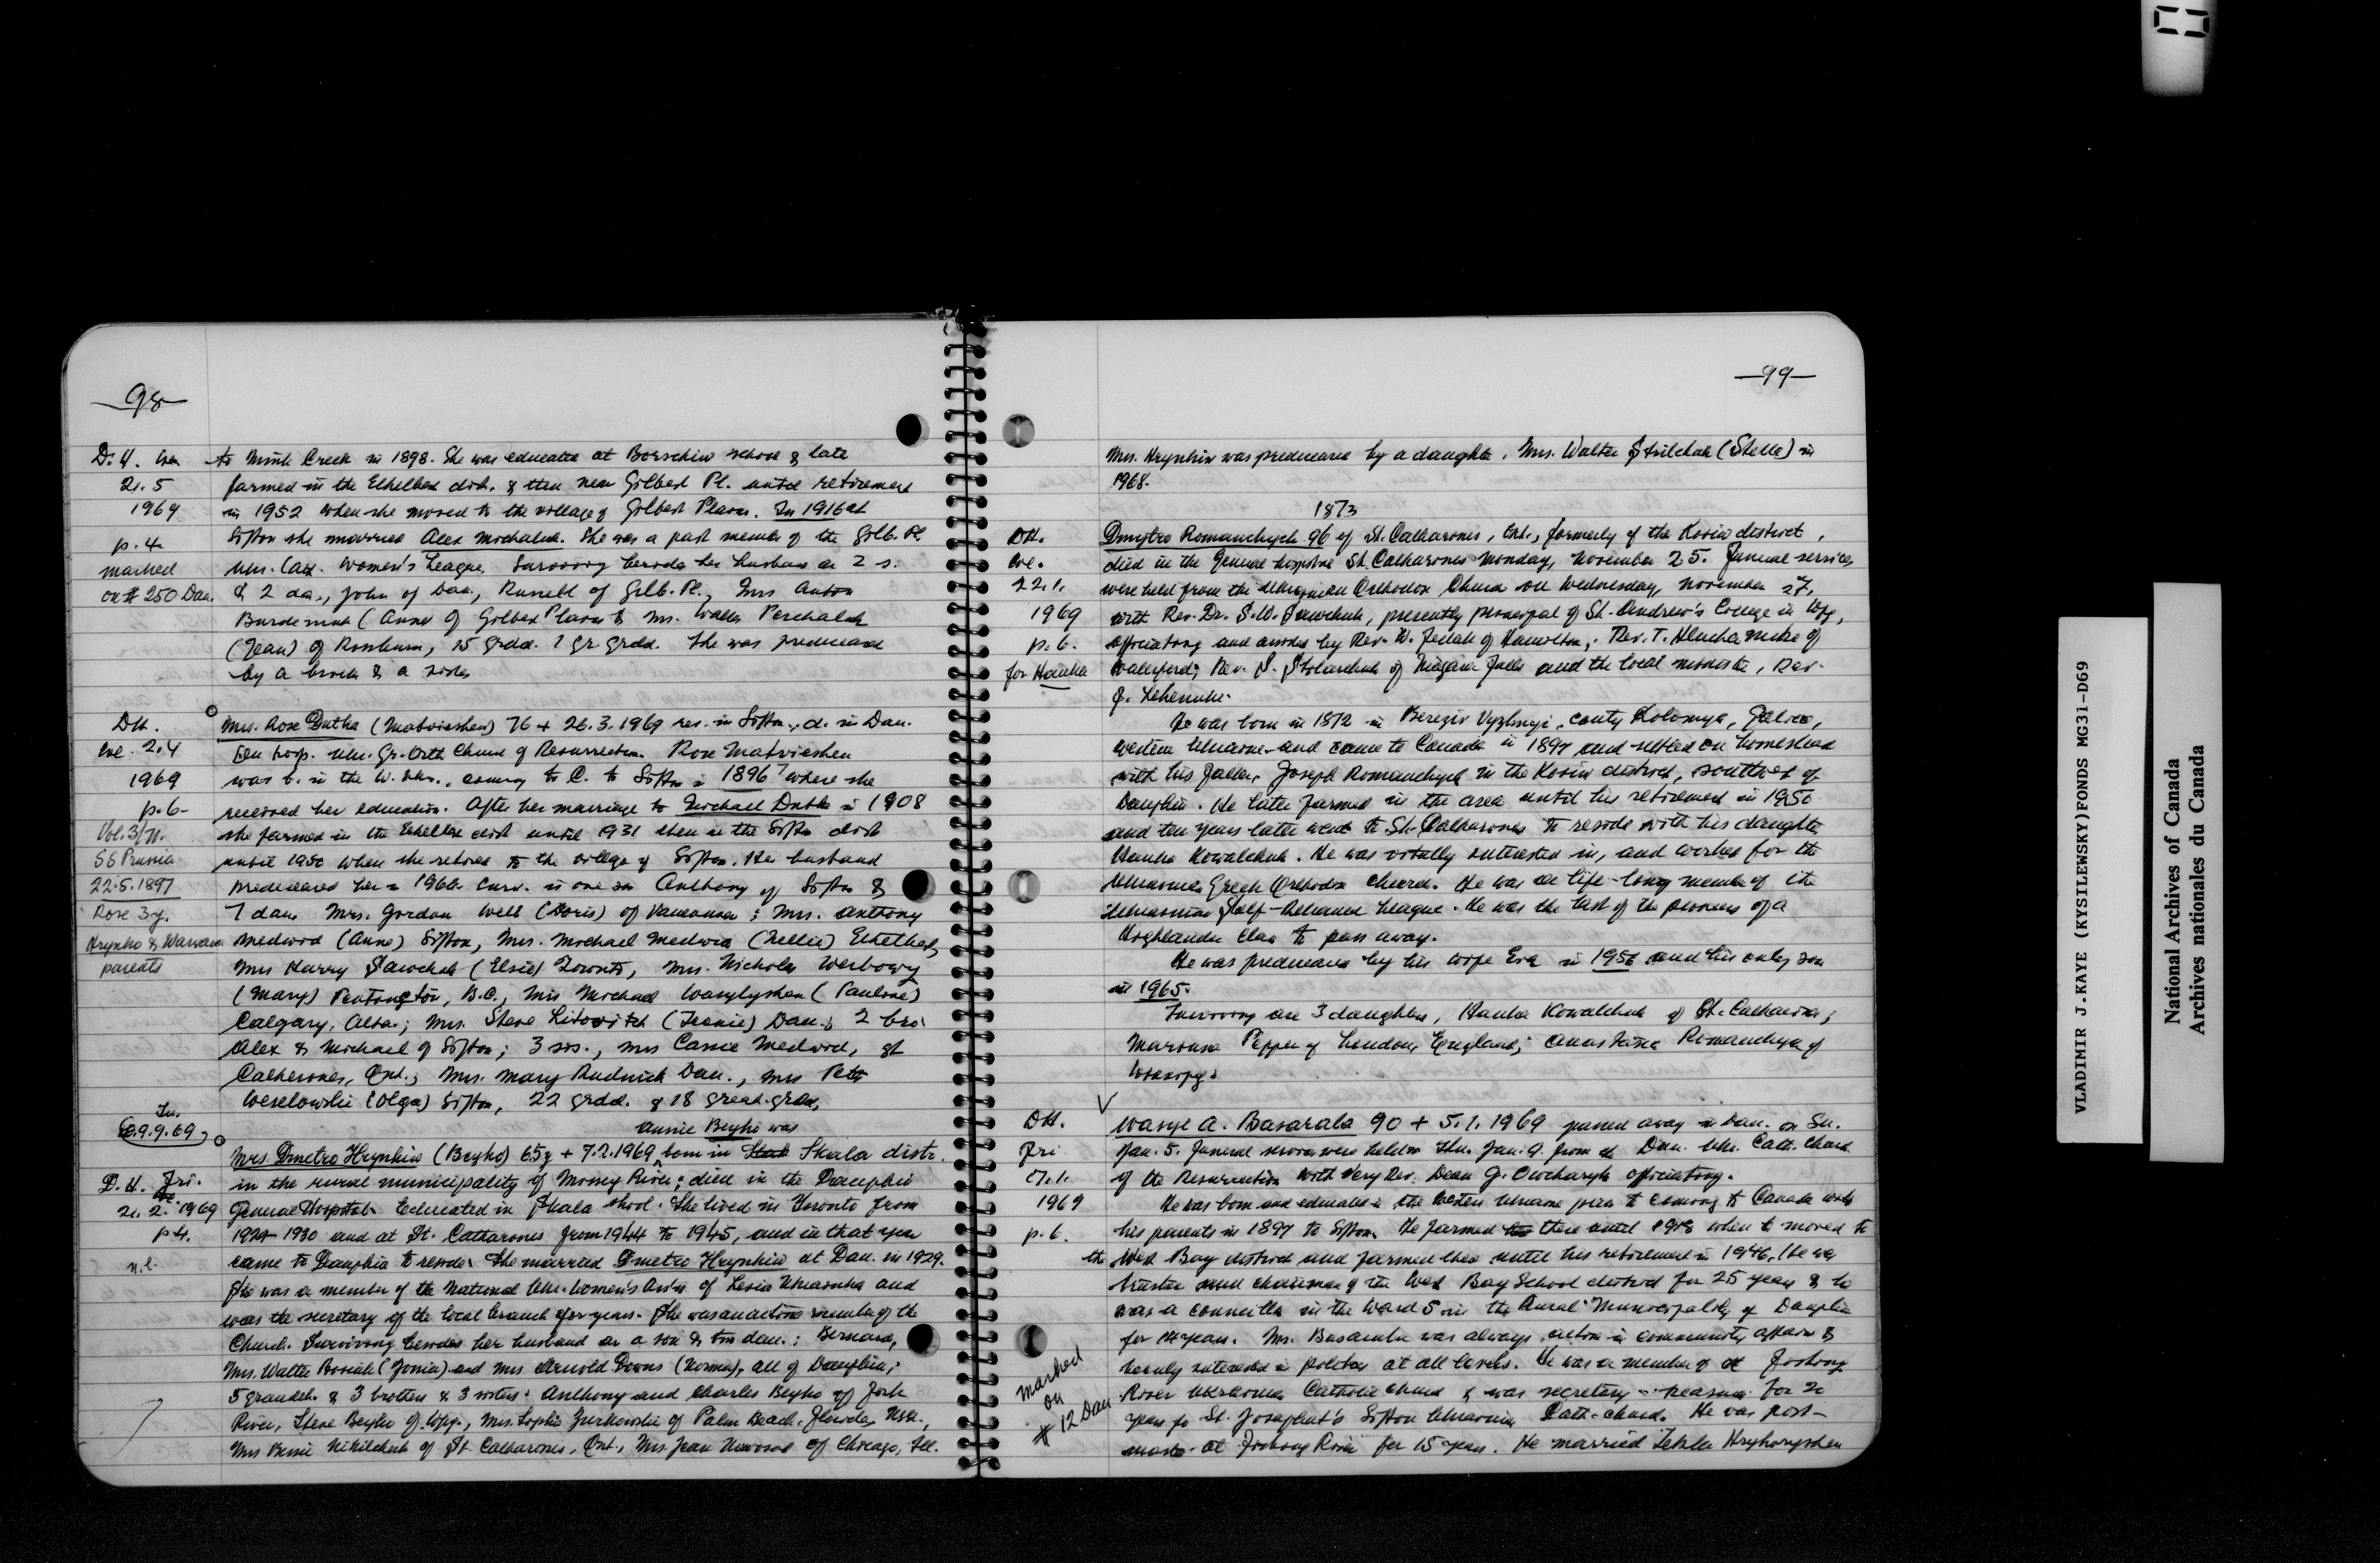 98
D. H. Wed
21. 5
1969
p. 4
marked
on # 250 Dau.
to Mink Creek in 1898. She was educated at Borschiw school & late
farmed in the Ethelbert dist. & then near Gilbert Pl. until retirement
in 1952 when she moved to the village of Gilbert Plains. In 1916 at
Sifton she married Alex Michaluk. She was a past member of the Gilb. Pl.
Ukr. Cath. Women's League. Surviving beside her husband are 2 s.
& 2 da., John of Dau., Russell of Gilb. Pl., Mrs Anton
(Anne of Gilbert Plains & Mrs. Walter
(Jean) of Rossburn, 15 grdd. 1 gr. grdd. She was predeceased
by a brother & a sister
DH.
We. 2.4
1969
p. 6
Vol. 3/71.
SS Prussia
22.5.1897
Rose 3y.
Hrynko & Warwara
parents
Mrs. Rose Dutka (Matvieshen) 76 + 26.3.1969 res. in Sifton, d. in Dau.
Gen hosp. Ukr. Gr. Orth Church of Resurrection. Rose Matvieshen
was b. in the W. Ukr., coming to C. to Sifton in 1896? where she
received her education. After her marriage to Michael Dutka in 1908
she farmed in the Ethelbert dist until 1931 then in the Sifton dist
until 1950 when she retired to the village of Sifton. Her husband
predeceased her in 1966. Surv. is one son Anthony of Sifton &
7 daus Mrs. Gordon Well (Doris) of Vancouver; Mrs. Anthony
Medwid (Anne) Sifton, Mrs. Michael Medwid (Nellie) Ethelbert,
Mrs Harry Sawchuk (Elsie) Toronto, Mrs. Nicholas Werbowy
(Mary) Pentington, B.C., Mrs Michael Wasylyshen (Pauline)
Calgary, Alta.; Mrs. Steve Litovitch (Jennie) Dau.; 2 bro.
Alex & Michael of Sifton; 3 sis., Mrs Cassie Medwid, St
Catherines, Ont.; Mrs. Mary Rudnick Dau., Mrs Peter
Weselowski (Olga) Sifton, 22 grdd. & 18 great-grdd.
Tu.
9.9.69
D. H. Fri.
21. 2. 1969
p 4.
n.l.
Annie Beyko was
Mrs. Dmetro Hrynkiw (Beyko) 65y + 7.2.1969 born in Skala distr.
in the rural municipality of Mossey River; died in the Dauphin
General Hospital. Educated in Skala school. She lived in Toronto from
1924 1930 and at St. Catharines from 1944 to 1945, and in that year
came to Dauphin to reside. She married Dmetro Hrynkiw at Dau. in 1929.
She was a member of the National Ukr. Women's Ass'n of Lesia Ukrainka and
was the secretary of the local branch for years. She was an active member of the
Church. Surviving besides her husband are a son & two dau.: Bernard,
Mrs. Walter Bosiak (Zonia) and Mrs. Arnold Downs (Norma), all of Dauphin;
5 grandch. & 3 brothers & 3 sisters: Anthony and Charles Beyko of Fork
River, Steve Beyko of Wpg., Mrs. Sophie Zurkowski of Palm Beach, Florida, USA.,
Mrs Bessie Nikilchuk of St. Catharines, Ont., Mrs Jean of Chicago, Ill.
99
Mrs. Hrynkiw was predeceased by a daughter, Mrs. Walter Strilchuk (Stella) in
1968.
1873
DH.
We.
22.1.
1969
p. 6.
for Hanka
Dmytro Romanchych 96 of St. Catharines, Ont., formerly of the Kosiw district,
died in the General hospital St. Catharines Monday, November 25. Funeral services
were held from the Ukrainian Orthodox Church on Wednesday, November 27,
with Rev. Dr. S.W. Sawchuk, presently principal of St. Andrew's College in Wpg,
officiating and assisted by Rev. W. of Hamilton; Rev. T. of
Waterford; Rev. S. Stolarchuk of Niagara Falls and the local minister, Rev.
He was born in 1872 in Bereziv Vyzhnyi, county Kolomya, Galicia,
western Ukraine and came to Canada in 1897 and settled on homestead
with his father, Joseph Romanchych in the Kosiw district, southwest of
Dauphin. He later farmed in the area until his retirement in 1950
and ten years later went to St. Catharines to reside with his daughter
Hanka Kowalchuk. He was vitally interested in, and worked for the
Ukrainian Greek Orthodox church. He was a life-long member of the
Ukrainian Self-Reliance League. He was the last of the pioneers of a
Highlander clan to pass away.
He was predeceased by his wife Eva in 1956 and his only son
in 1965.
Surviving are 3 daughters, Hanka Kowalchuk of St. Catharines;
Marousa Pepper of London, England; Anastasia Romanchych of
Winnipeg.
DH.
Fri
17.1.
1969
p. 6.
marked
on
# 12 Dau
Wasyl A. Basaraba 90 + 5.1.1969 passed away in Dau. on Su.
Jan. 5. Funeral services were held on Thu. Jan. 9. from the Dau. Ukr. Cath. Church
of the Resurrection with Very Rev. Dean G. Owcharyk officiating.
He was born and educated in the Western Ukraine prior to coming to Canada with
his parents in 1897 to Sifton. He farmed there until 1918 when he moved to
the West Bay district and farmed there until his retirement in 1946. He was
trustee and chairman of the West Bay School district for 25 years & he
was a councillor in the Ward 5 in the Rural Municipality of Dauphin
for 14 years. Mr. Basaraba was always active in community affairs &
keenly interested in politics at all levels. He was a member of the Fishing
River Ukrainian Catholic church & was secretary-treasurer for 20
years for St. Josaphat's Sifton Ukrainian Cath. church. He was post-
master at Fishing River for 15 years. He married Tekla Hryhoryshen
VLADIMIR J.KAYE (KYSILEWSKY)FONDS MG31-D69
National Archives of Canada
Archives nationales du Canada